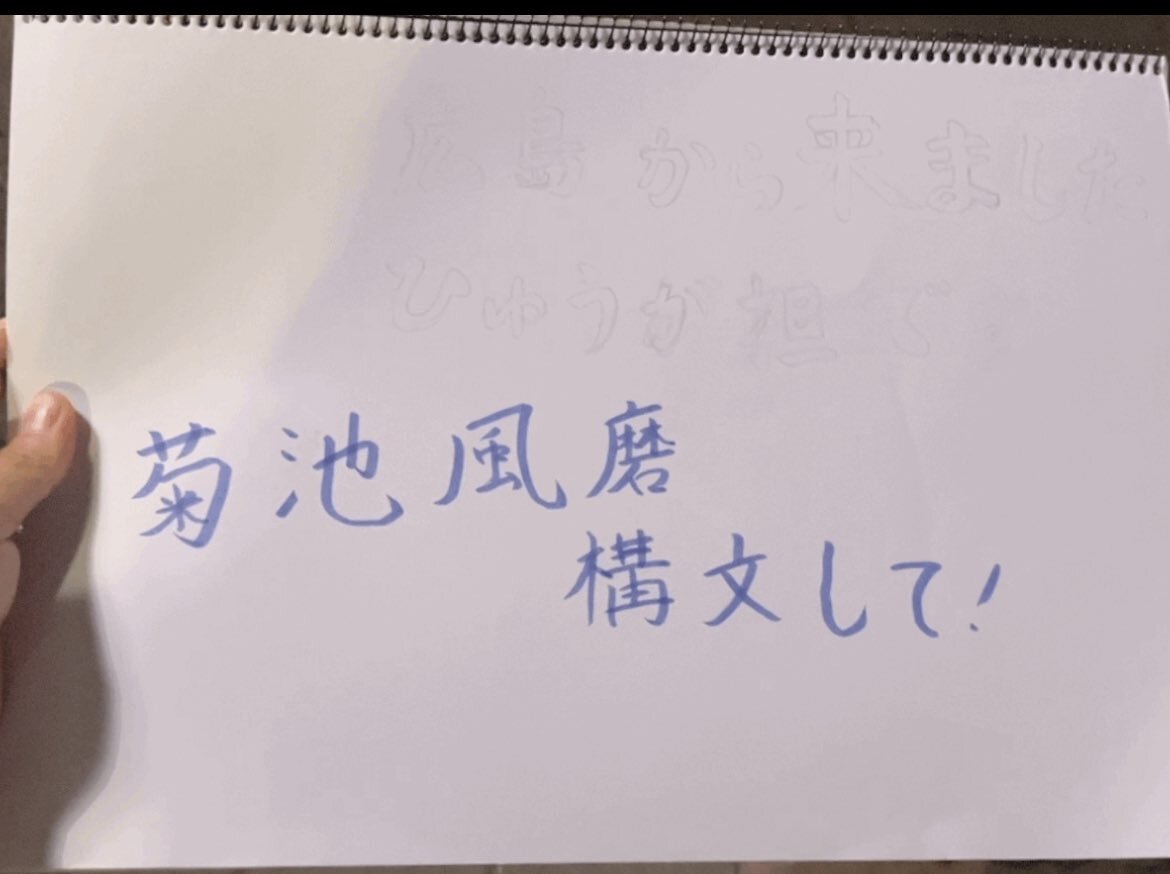 広島から来ました
ひゅうが担で
菊池風磨
構文して!